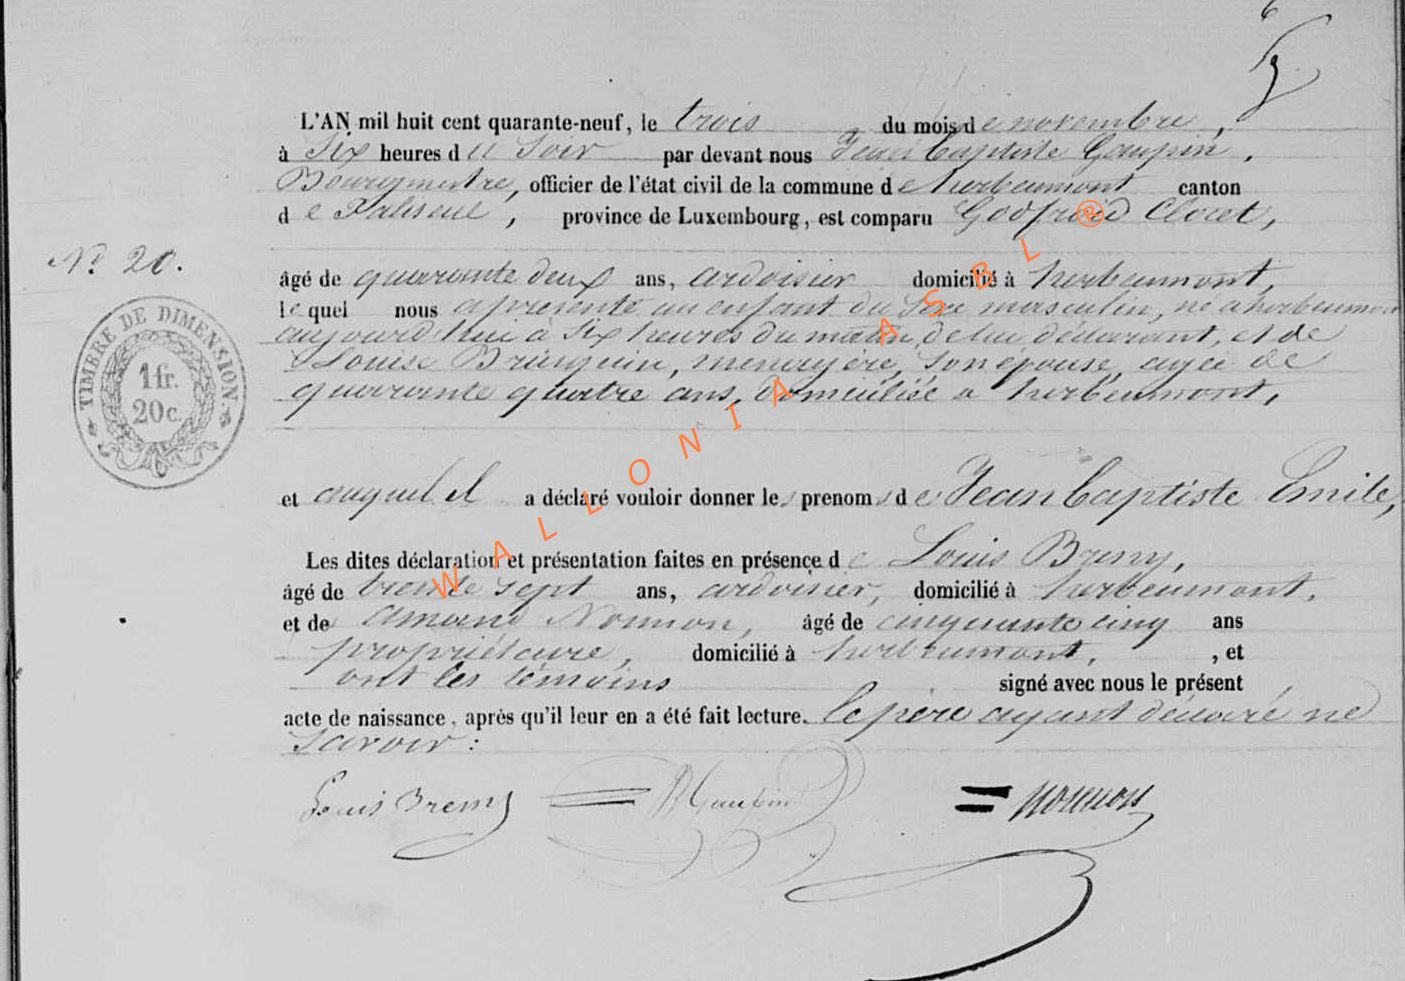 L'AN mil huit cent quarante-neuf, le trois du mois de novembre,
à Six heures du Soir par devant nous Jean baptiste Gaupin,
Bourgmestre, officier de l'état civil de la commune de herbeumont canton
de Paliseul, province de Luxembourg, est comparu Godfroid Cloret,
N° 20.
âgé de quarante deux ans, ardoisier domicilié à herbeumont,
lequel nous a présenté un enfant du Sexe masculin, né a herbeumont
aujourd'hui à Six heures du matin, de lui déclarant, et de
Louise, menagère, Son epouse, agée de
quarante quatre ans, Domiciliée a herbeumont,
et auquel il a déclaré vouloir donner les prenoms de Jean baptiste Emile,
Les dites déclaration et présentation faites en présence de Louis Bremy,
âgé de trente sept ans, ardoisier, domicilié à herbeumont,
et de amand Nonnon, âgé de cinquante cinq ans
propriétaire, domicilié à herbeumont, , et
ont les témoins signé avec nous le présent
acte de naissance, après qu'il leur en a été fait lecture. le père ayant déclaré ne
Savoir :
Louis Bremy Gaupin Nonnon
TIMBRE DE DIMENSION
1 fr.
20 c.
WALLONIA ASBL ®